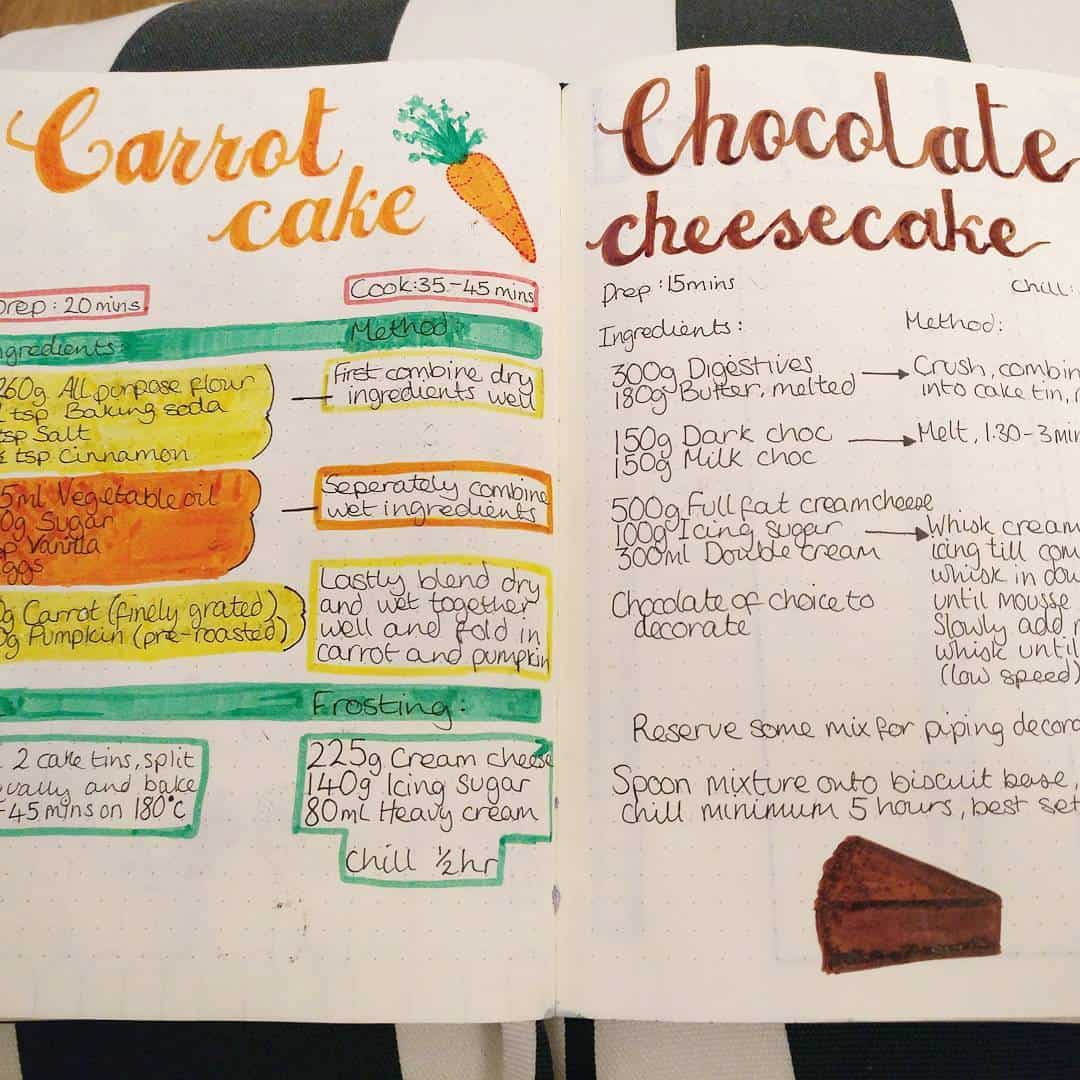 Carrot
cake
Prep: 20 mins
Cook: 35-45 mins
Ingredients:
Method:
260g All purpose flour
tsp Baking soda
tsp Salt
tsp Cinnamon
First combine dry
ingredients well
5ml Vegetable oil
0g Sugar
Vanilla
eggs
Seperately combine
wet ingredients
0g Carrot (finely grated)
0g Pumpkin (pre-roasted)
Lastly blend dry
and wet together
well and fold in
carrot and pumpkin
Frosting:
2 cake tins, split
and bake
-45 mins on 180°C
225g Cream cheese
140g Icing Sugar
80ml Heavy cream
Chill ½hr
Chocolate
cheesecake
Prep: 15mins
Chill:
Ingredients:
Method:
300g Digestives
180g Butter, melted
Crush, combin
into cake tin,
150g Dark choc
150g Milk choc
Melt, 1:30-3 min
500g Full fat creamcheese
100g Icing sugar
300ml Double cream
Whisk cream
icing till com
whisk in dou
until mousse
Slowly add
whisk until
(low speed)
Chocolate of choice to
decorate
Reserve some mix for piping decora
Spoon mixture onto biscuit base,
chill minimum 5 hours, best set